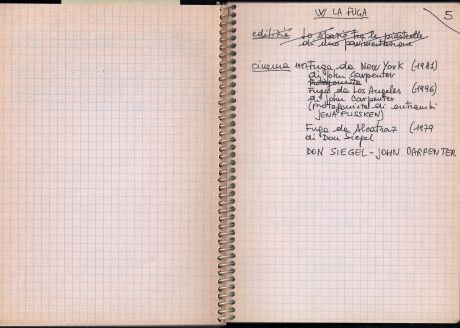 W LA FUGA
5
edilizia Lo spazio tra le piastrelle
di una pavimentazione
cinema Fuga da New York (1981)
di John Carpenter
Protagonista
Fuga da Los Angeles (1996)
di John Carpenter
(protagonista di entrambi
JENA PLISSKEN)
Fuga da Alcatraz (1979
di Don Siegel
DON SIEGEL - JOHN CARPENTER